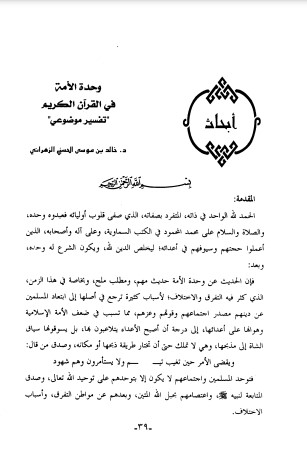 وحدة الأمة
في القرآن الكريم
"تفسير موضوعي"
أبحاث
د. خالد بن موسى الحسني الزهراني
بسم الله الرحمن الرحيم
المقدمة:
الحمد لله الواحد في ذاته، المتفرد بصفاته، الذي صفى قلوب أوليائه فعبدوه وحده،
والصلاة والسلام على محمد المحمود في الكتب السماوية، وعلى آله وأصحابه، الذين
أعملوا حجتهم وسيوفهم في أعدائه؛ ليخلص الدين لله، ويكون الشرع له وحده،
وبعد:
فإن الحديث عن وحدة الأمة حديث مهم، ومطلب ملح، وبخاصة في هذا الزمن،
الذي كثر فيه التفرق والاختلاف؛ لأسباب كثيرة ترجع في أصلها إلى ابتعاد المسلمين
عن دينهم مصدر اجتماعهم وقوتهم وعزهم، مما تسبب في ضعف الأمة الإسلامية
وهوانها على أعدائها، إلى درجة أن أصبح الأعداء يتلاعبون بها، بل يسوقونها سياق
الشاة إلى مذبحها، وهي لا تملك حتى أن تختار طريقة ذبحها أو مكانه، وصدق من قال:
ويقضى الأمر حين تغيب تيـــم ولا يستأمرون وهم شهود
فتوحد المسلمين واجتماعهم لا يكون إلا بتوحدهم على توحيد الله تعالى، وصدق
المتابعة لنبيه ﷺ، واعتصامهم بحبل الله المتين، وبعدهم عن مواطن التفرق، وأسباب
الاختلاف.
-٣٩-